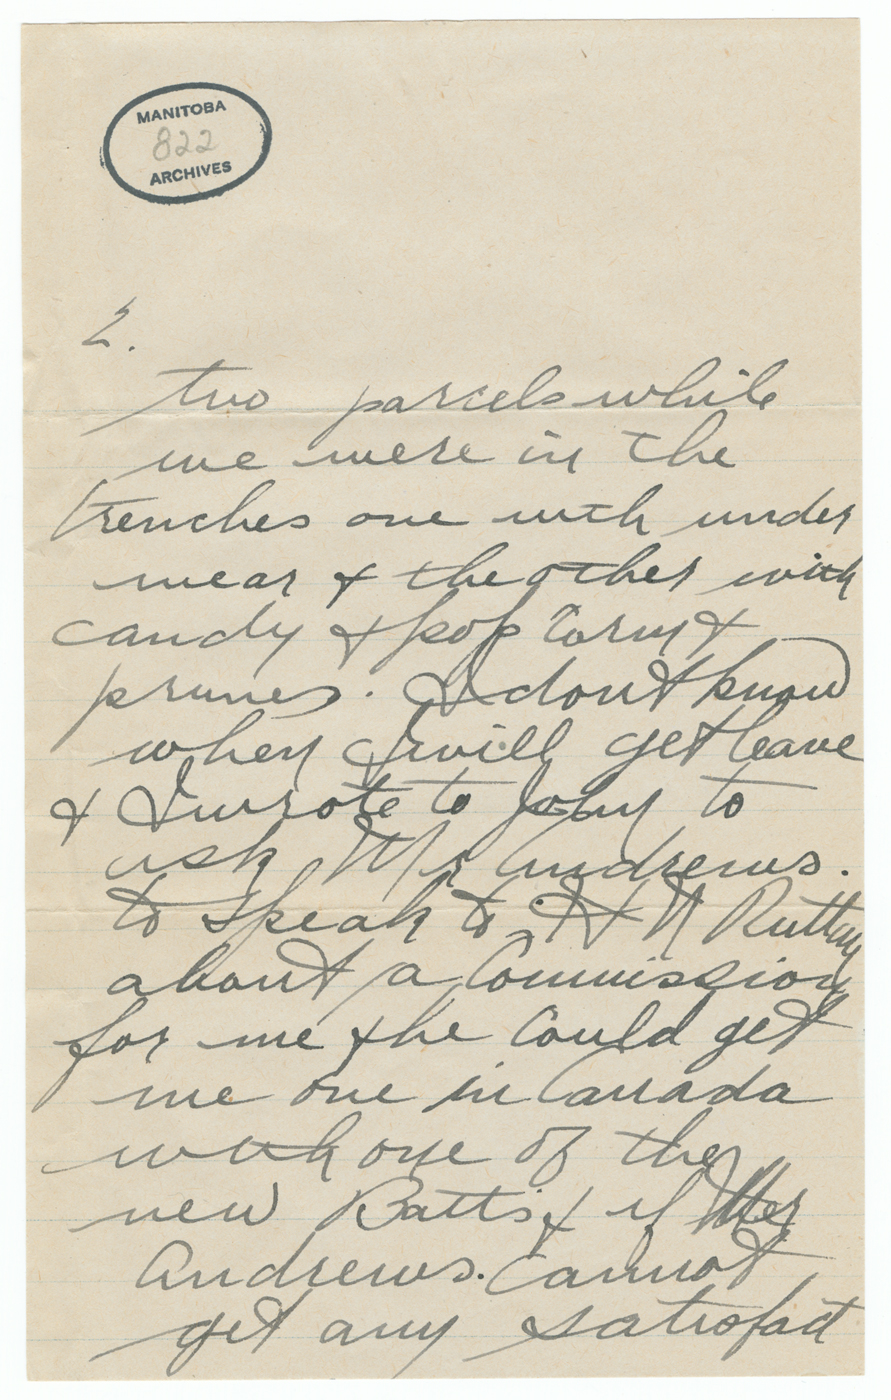 MANITOBA
822
ARCHIVES
2.
two parcels while
we were in the
trenches one with under
wear & the other with
candy & pop Corn &
prunes. I dont know
when I will get leave
& I wrote to John to
ask Mr Andrews.
to speak to H N Ruttan
about a Commission
for me & he Could get
me one in Canada
with one of the
new Batts & if Mr
Andrews. Cannot
get any satisfact